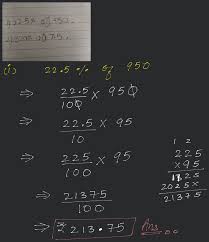 22.5% of 950
(i) 22.5 % of 950
⇒ 22.5/100 × 950
⇒ 22.5/10 × 95
⇒ 225/100 × 95
⇒ 21375/100
⇒ ₹ 213.75 Ans
1 2
225
×95
1125
2025×
21375